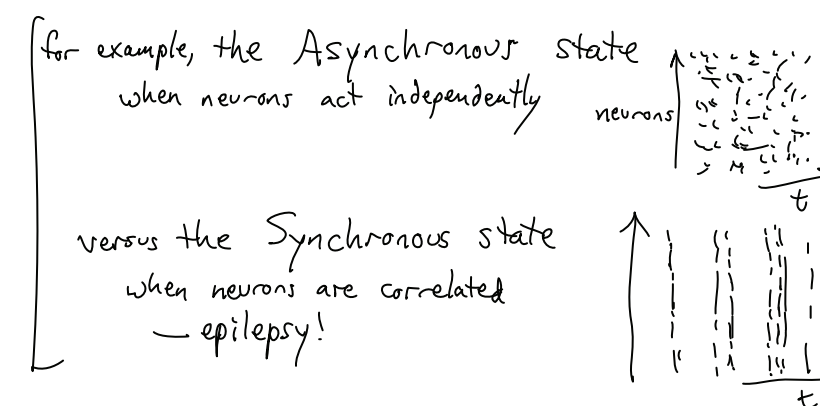 for example, the Asynchronous state
when neurons act independently
neurons
t
versus the Synchronous state
when neurons are correlated
— epilepsy!
t